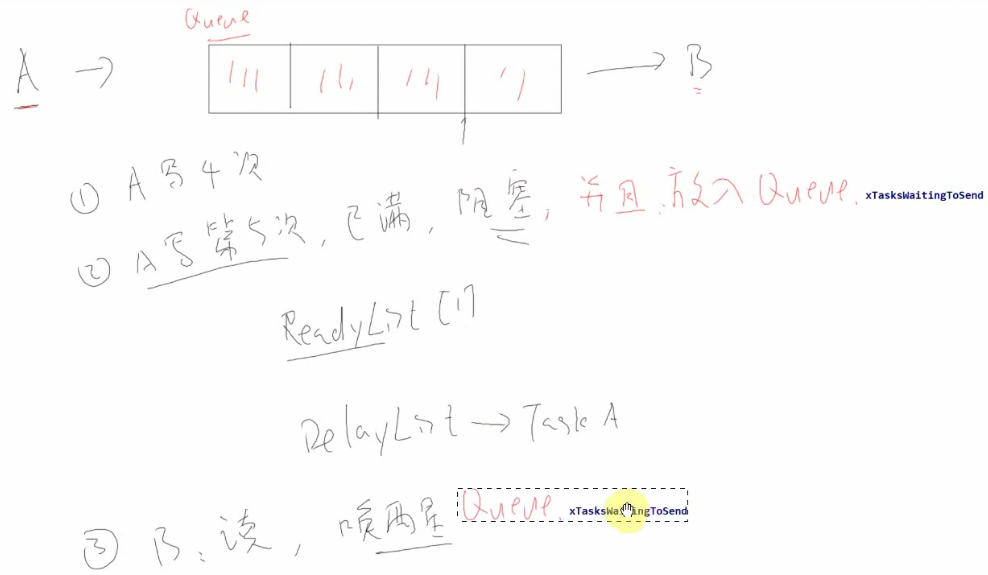 Queue
A → → B
① A写4次
② A写第5次,已满,阻塞,并且.放入Queue.xTasksWaitingToSend
ReadyList [1]
DelayList → Task A
③ B:读,唤醒 Queue.xTasksWaitingToSend